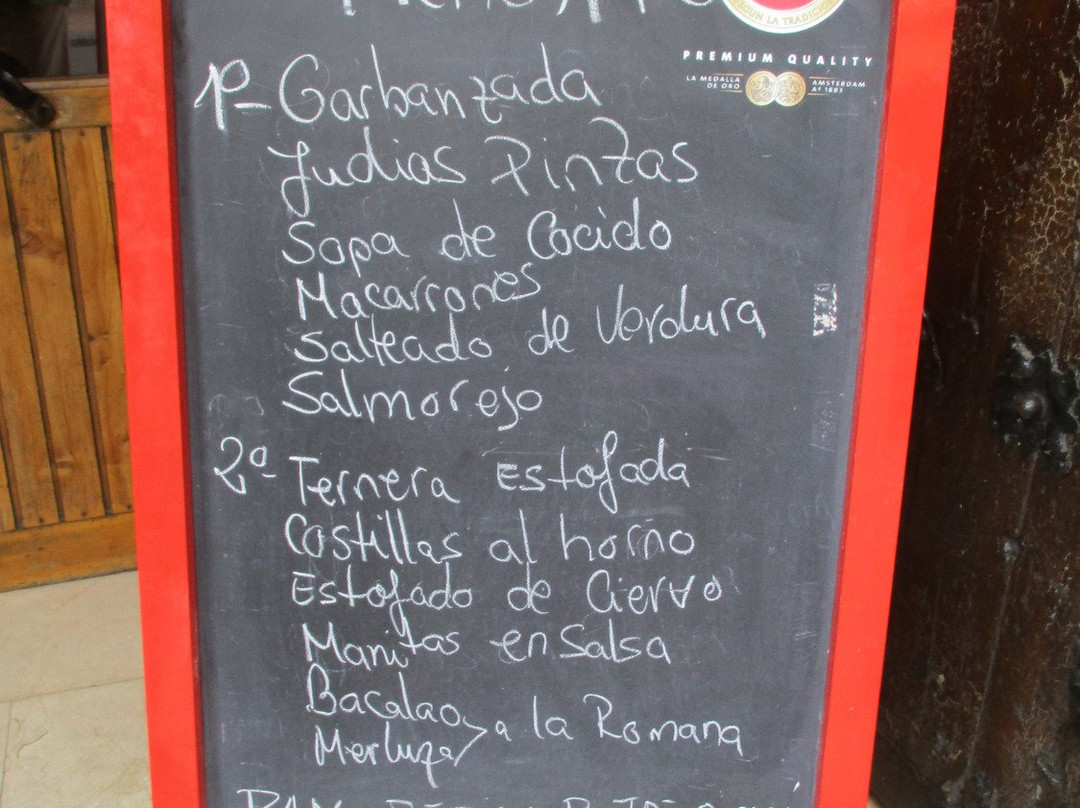 SEGUN LA TRADICION
PREMIUM QUALITY
LA MEDALLA DE ORO
AMSTERDAM Aº 1883
1º- Garbanzada
Judias Pintas
Sopa de Cocido
Macarrones
Salteado de Verdura
Salmorejo
2º- Ternera Estofada
Costillas al horno
Estofado de Ciervo
Manitas en Salsa
Bacalao
Merluza
a la Romana